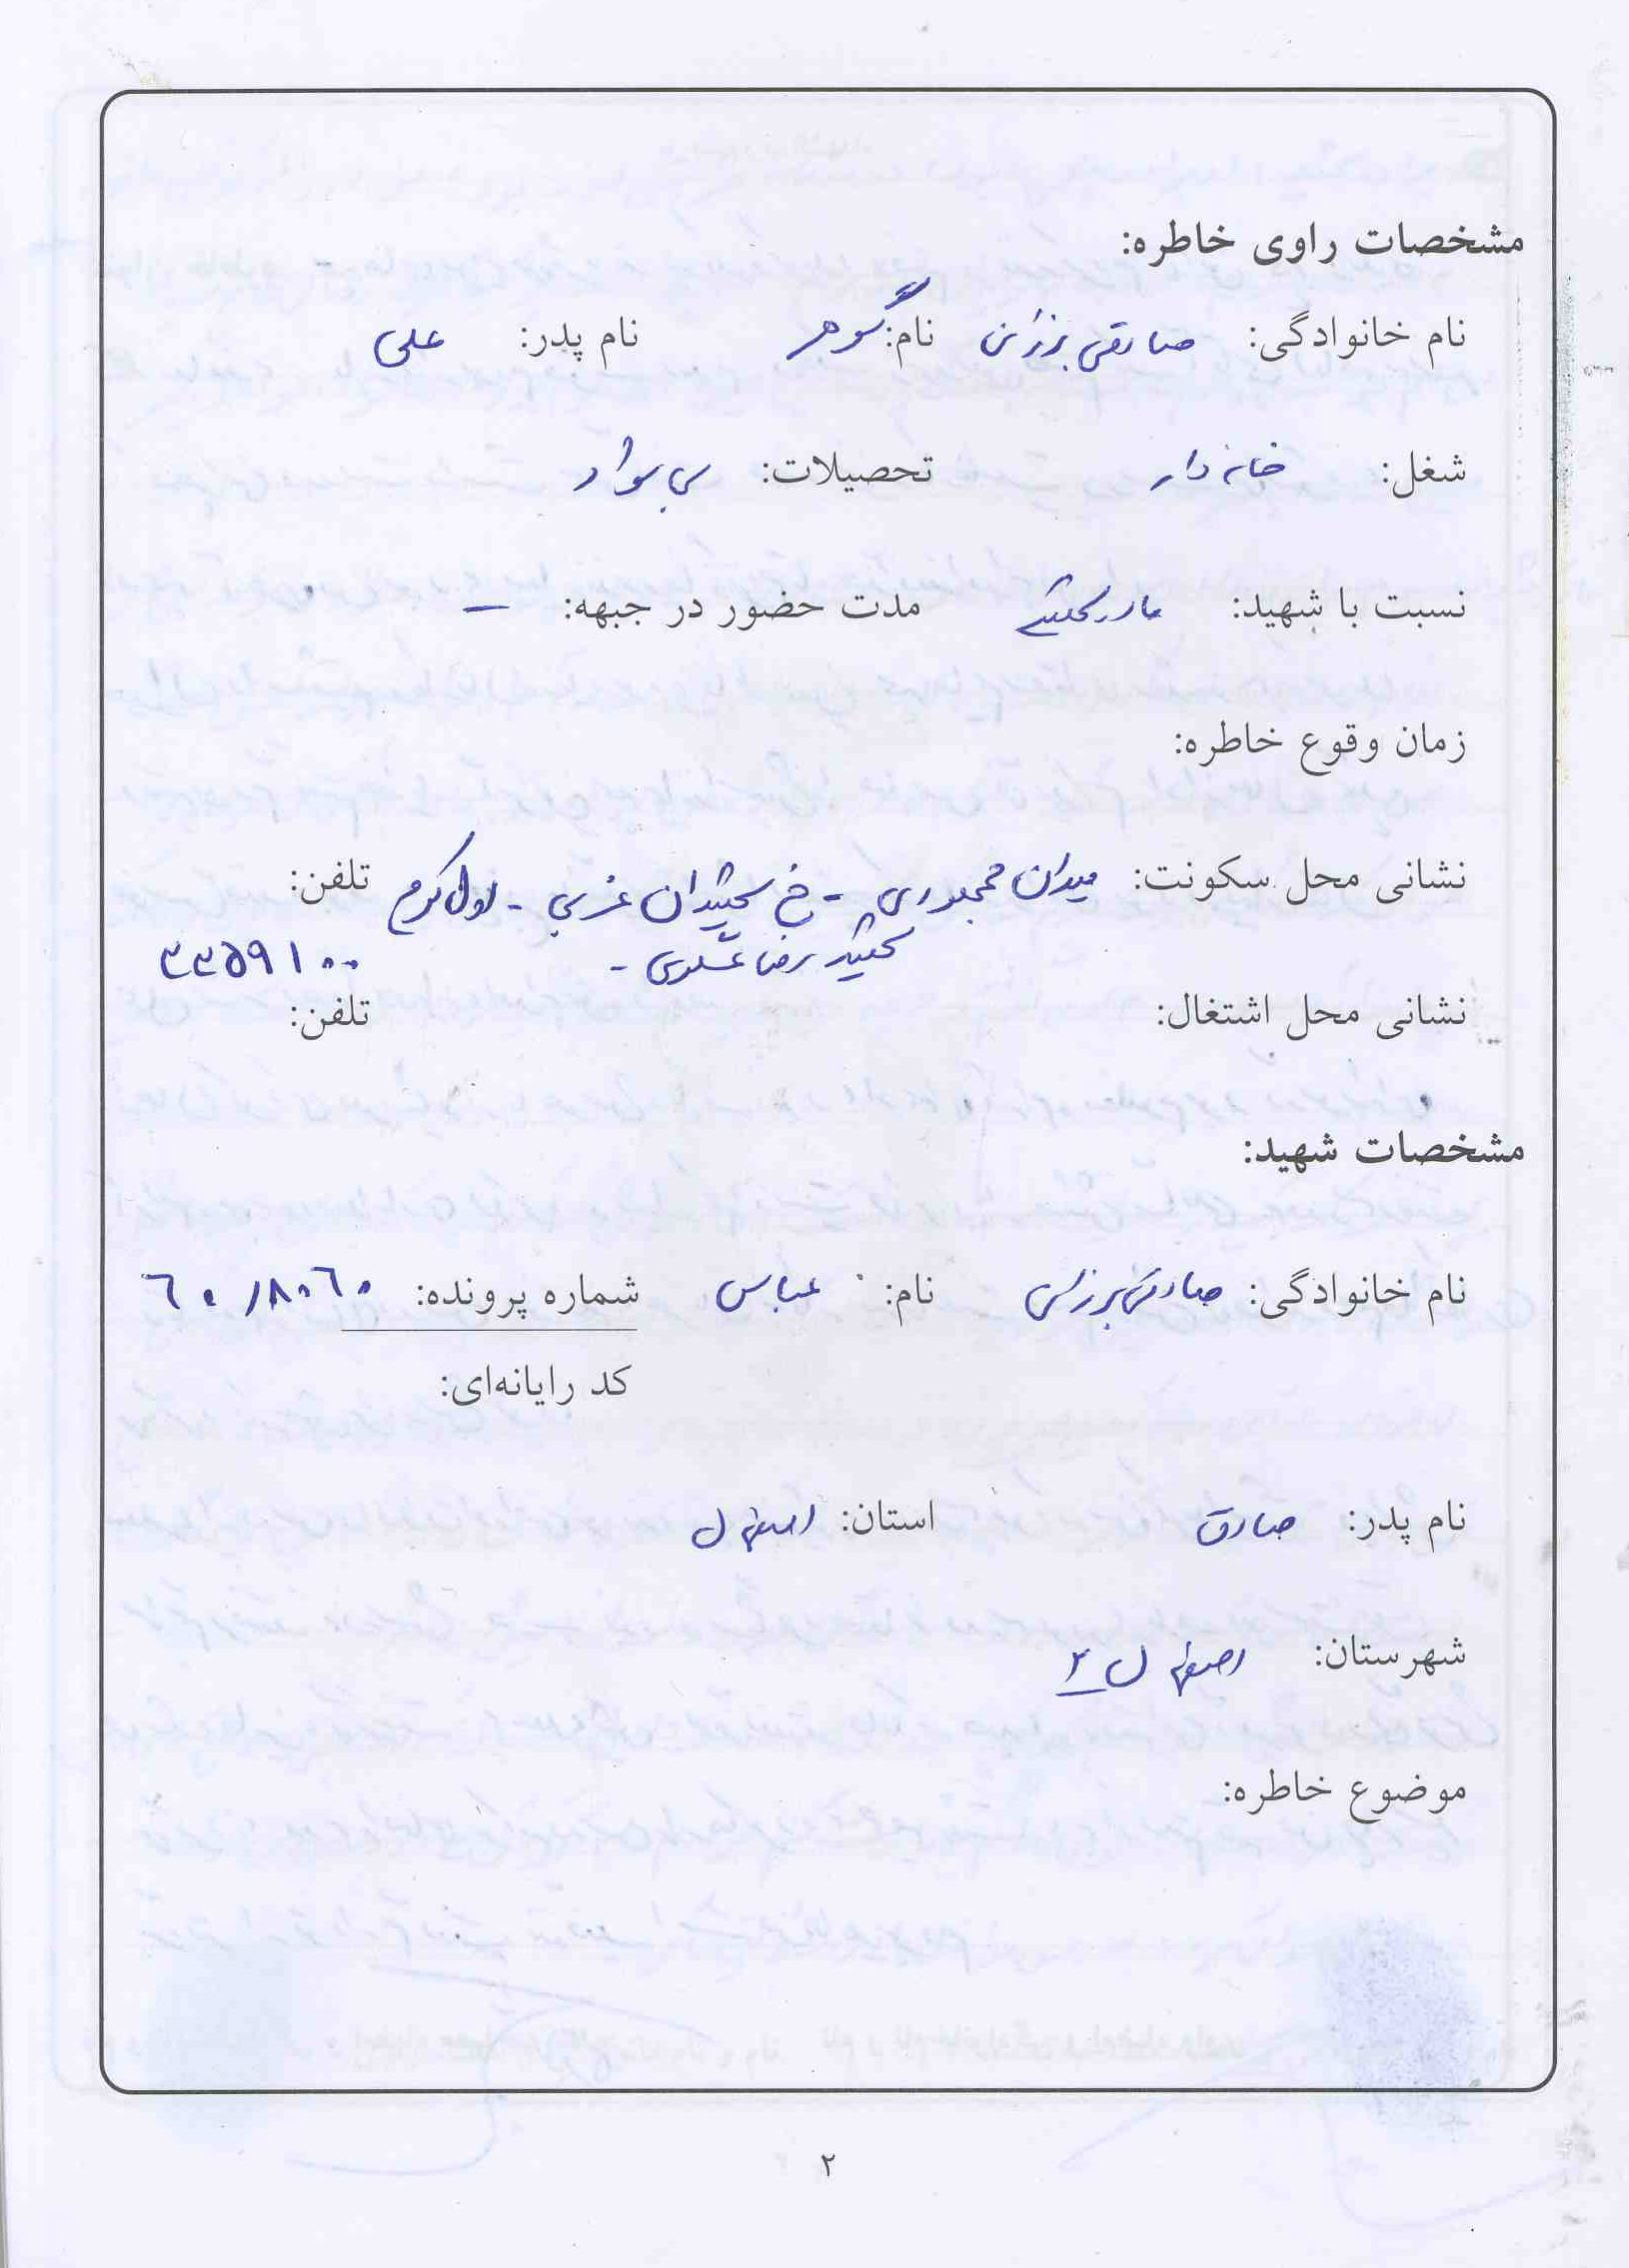 مشخصات راوی خاطره:
نام خانوادگی: صادقی برزانی نام: گوهر نام پدر: علی
شغل: خانه دار تحصیلات: بی سواد
نسبت با شهید: مادر شهید مدت حضور در جبهه: –
زمان وقوع خاطره:
نشانی محل سکونت: میدان جمهوری - خ شهیدان غربی - اول کوی تلفن:
شهید رضا عسگری - ۳۳۵۹۱۰۰
نشانی محل اشتغال: تلفن:
مشخصات شهید:
نام خانوادگی: صادقی برزانی نام: عباس شماره پرونده: ۶۰/۸۰۶۰
کد رایانه‌ای:
نام پدر: صادق استان: اصفهان
شهرستان: اصفهان ۲
موضوع خاطره:
۲